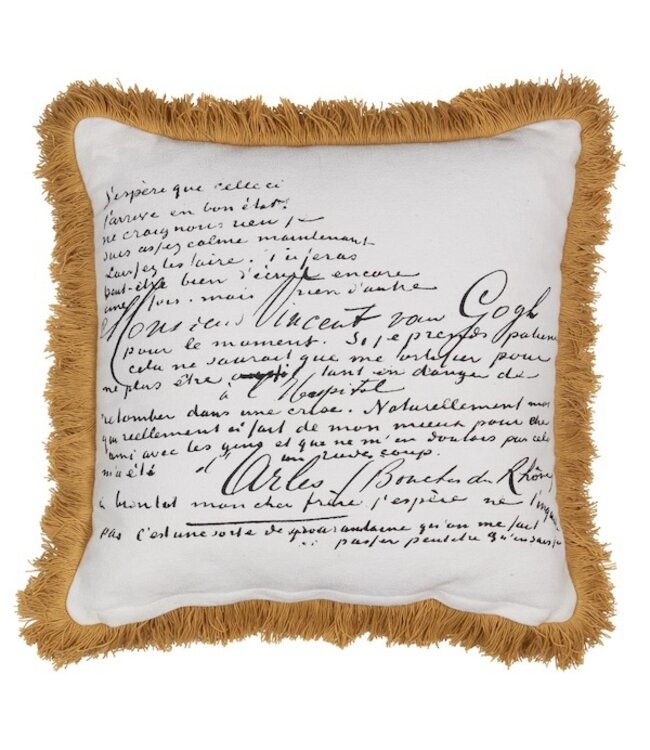 J'espère que celle ci
t'arrive en bon état.
ne craignons rien je
suis assez calme maintenant
Laissez les faire. Tu feras
peut-être bien d'écrire encore
une fois. mais rien d'autre
Monsieur Vincent van Gogh
pour le moment. Si je prends patience
cela ne saurait que me fortifier pour
ne plus être tant en danger de
à l'Hospital
retomber dans une crise. Naturellement moi
qui reellement ai fait de mon mieux pour être
ami avec les gens et que ne m'en doutais pas cela
m'a été un rude coup.
d'Arles (Bouches du Rhône)
à bientot mon cher frère j'espère ne
pas c'est une sorte de quarantaine qu'on me fait
passer peutetre qu'en sais je